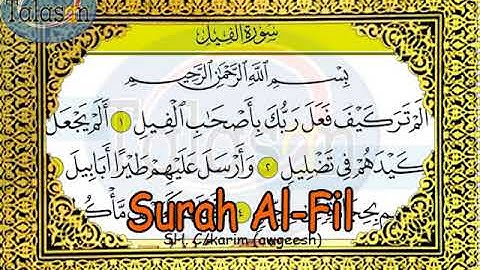 Talasan
سورة الفيل
بِسْمِ اللَّهِ الرَّحْمَٰنِ الرَّحِيمِ
أَلَمْ تَرَ كَيْفَ فَعَلَ رَبُّكَ بِأَصْحَابِ الْفِيلِ ١ أَلَمْ يَجْعَلْ
كَيْدَهُمْ فِي تَضْلِيلٍ ٢ وَأَرْسَلَ عَلَيْهِمْ طَيْرًا أَبَابِيلَ
Surah Al-Fil
SH. C/karim (awgeesh)